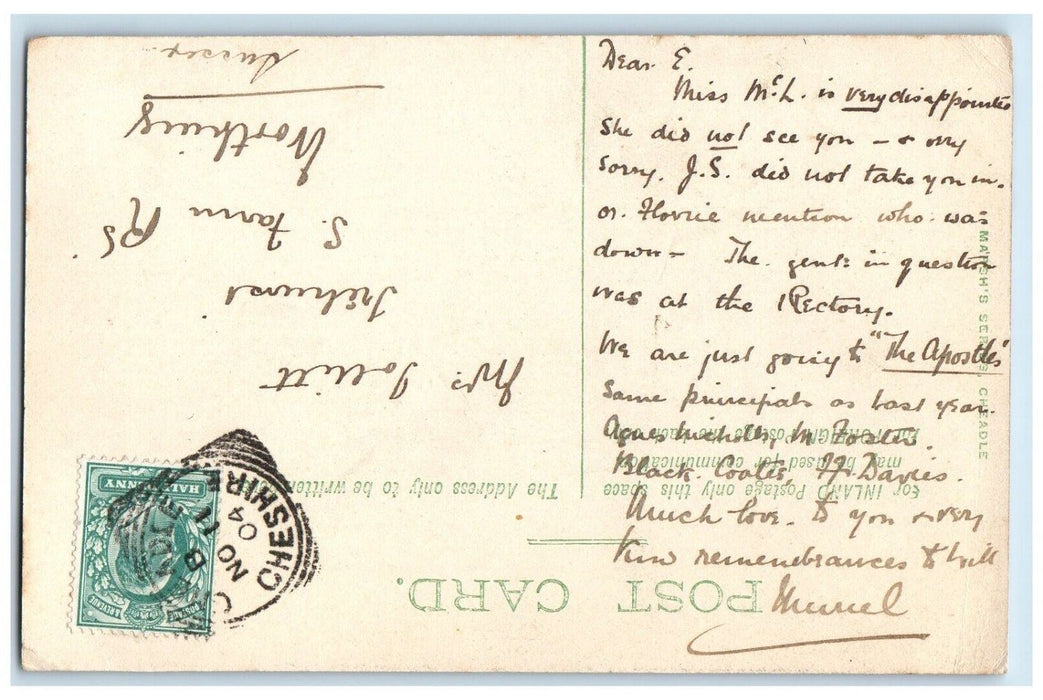 Dear E.
Miss McL. is very disappointed
she did not see you – & very
sorry. J.S. did not take you in.
or. Florrie mention who was
down – The gent: in question
was at the Rectory.
We are just going to "The Apostles"
same principals as last year.
Agnes Nicholls, M. Foster.
Black. Coates, Ff Davies.
Much love. to you & very
kind remembrances to Will
Muriel
MARSH'S SERIES, CHEADLE
POST CARD.
For INLAND Postage only this space
may be used for communication
For FOREIGN Postage the back only
The Address only to be written
Mrs.
S. Farm Rd
Worthing
Sussex
CHESHIRE
NO 11
04
POSTAGE & REVENUE
HALFPENNY